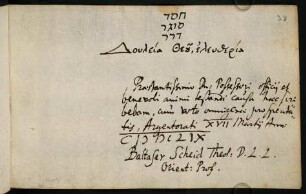 חסד
סוגר
דרך
Δουλεία Θεοῦ, ἐλευθερία
Praestantissimo Dno Possessori officij et
benevoli animi testandi causa haec scri
bebam, cum voto omnigenae prosperita
tis, Argentorati XVII Martij Anni
CIƆ IƆC LIX
Balthasar Scheid Theol: D. L. L.
Orient: Prof.